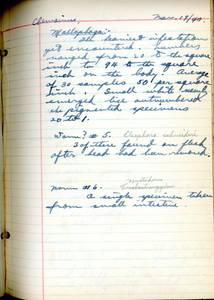 Clemsiana,
Nov. 18/40.
Mallophaga:
The heaviest infestation
yet encountered. Numbers
ranged from 20 to the square
inch to 98 to the square
inch on the body. Average
of 30 samples 50 per square
inch. Small white newly
emerged lice outnumbered
the pigmented specimens
20 to 1.
Worm? # 5.
3 of these found on flesh
after head had been removed.
Worm # 6.
A single specimen taken
from small intestine.